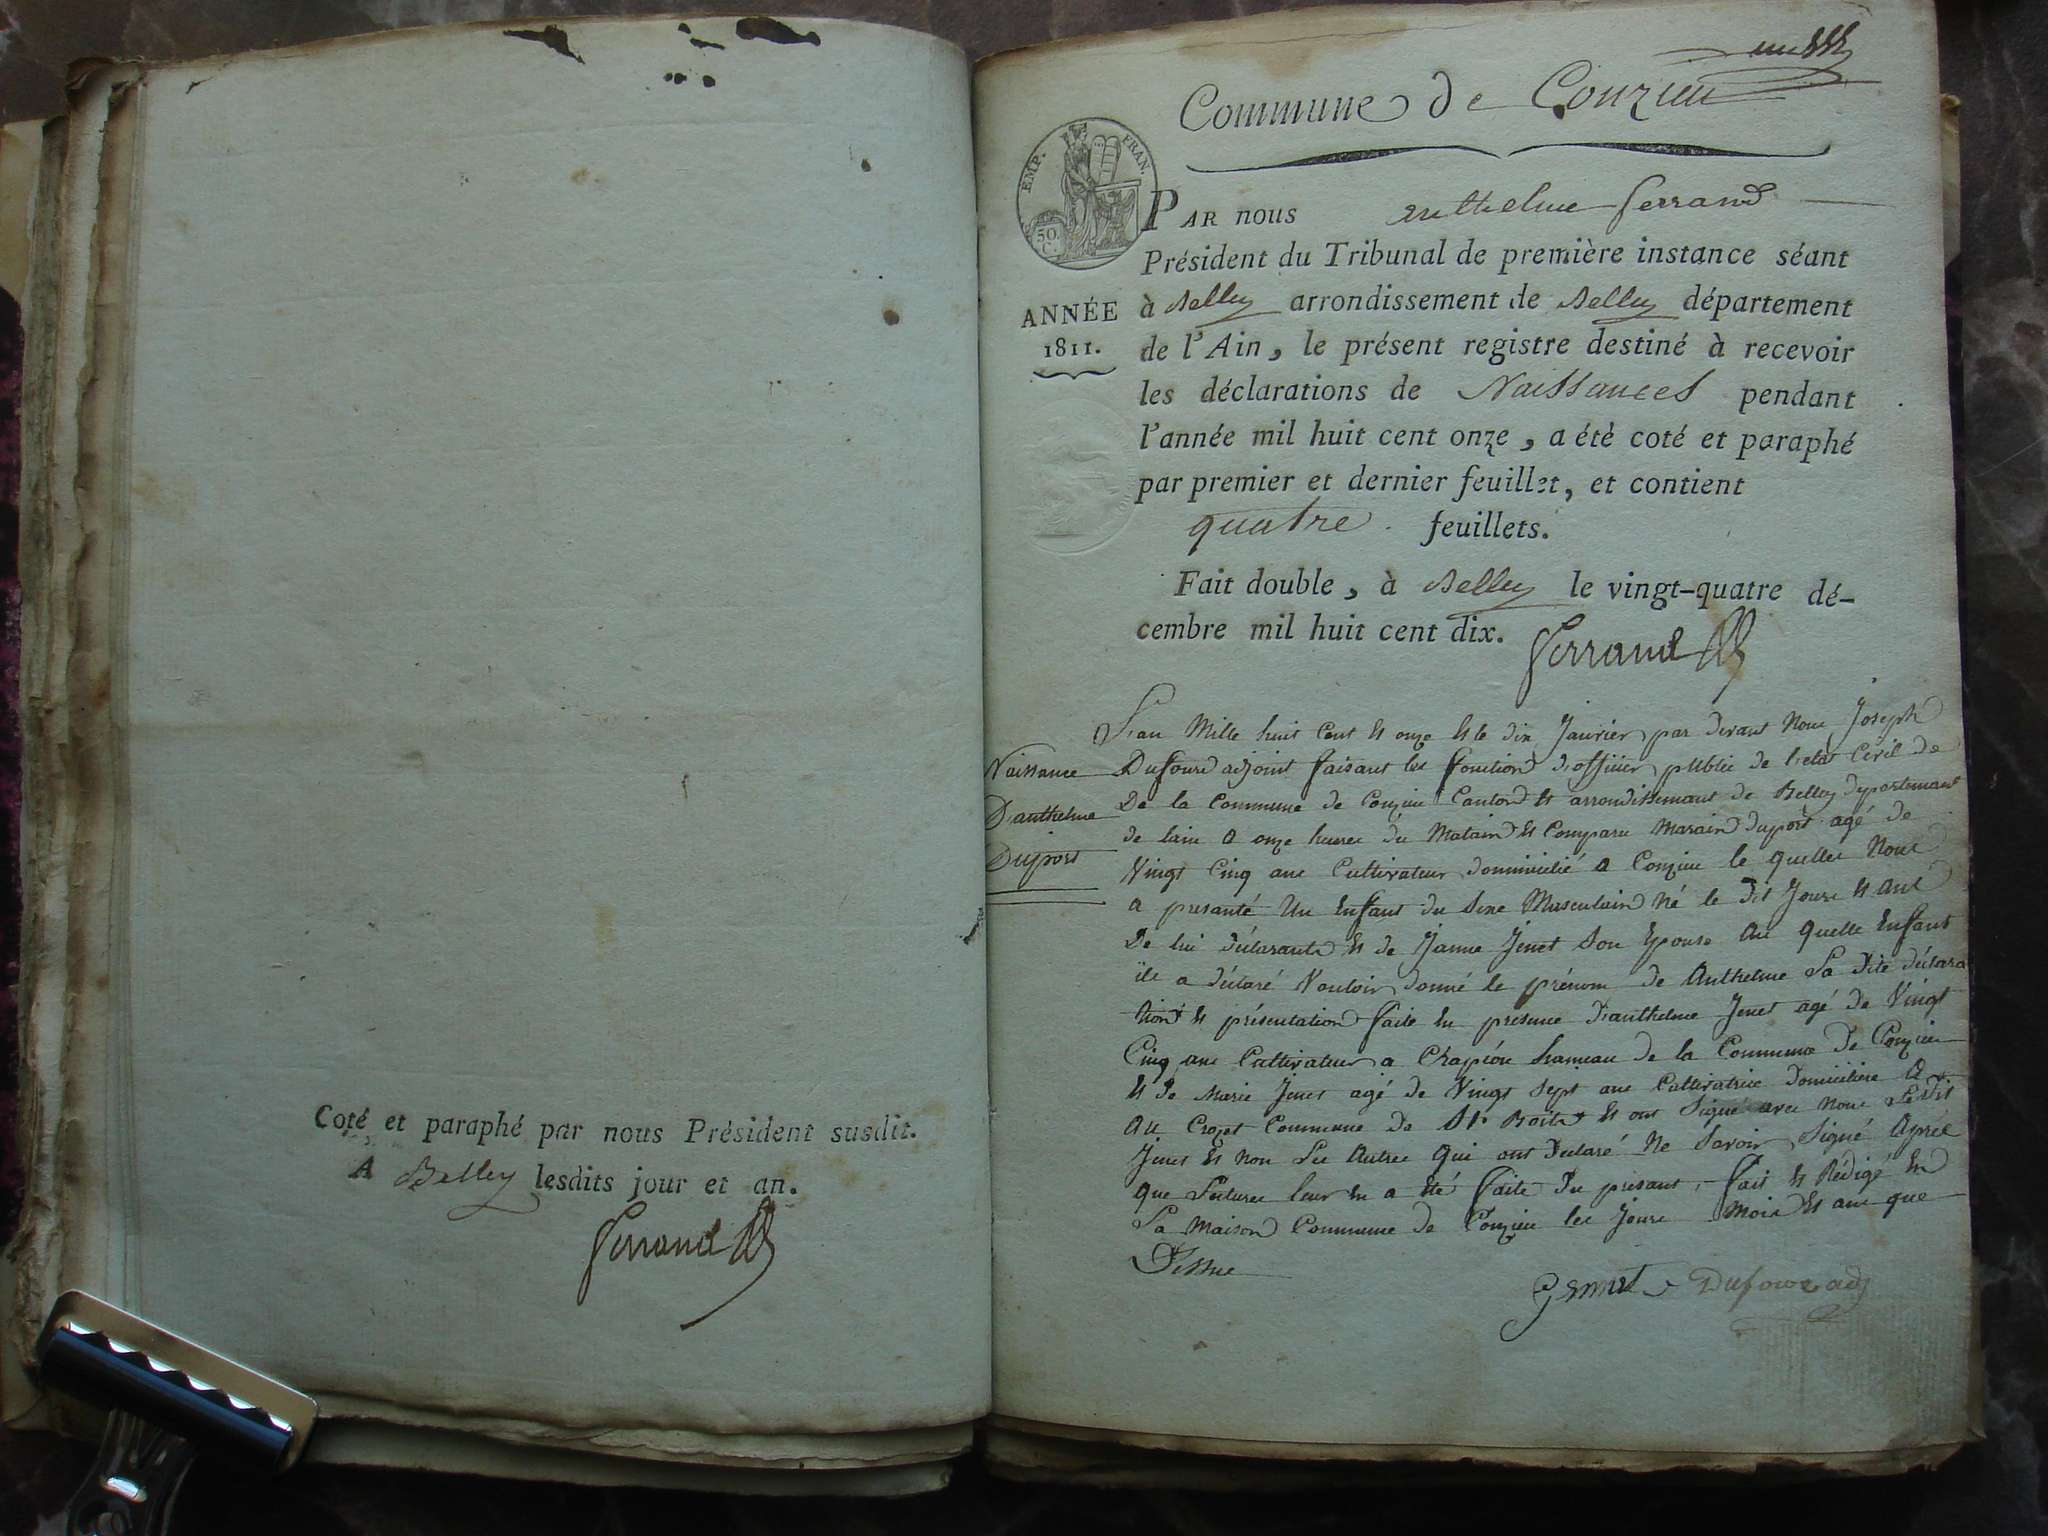 Coté et paraphé par nous Président susdit.
A Belley lesdits jour et an.
Ferrand
un
Commune de Conzieu
EMP. FRAN.
50.
C.
PAR nous anthelme ferrand
Président du Tribunal de première instance séant
ANNÉE
1811.
à Belley arrondissement de Belley département
de l'Ain, le présent registre destiné à recevoir
les déclarations de Naissances pendant
l'année mil huit cent onze, a été coté et paraphé
par premier et dernier feuillet, et contient
quatre feuillets.
Fait double, à Belley le vingt-quatre dé-
cembre mil huit cent dix.
Ferrand
Naissance
D'anthelme
Duport
L'an Mille huit Cent et onze et le dix Janvier par devant Nous Joseph
Dufour adjoint faisant les fonction d'officier publie de l'etat Civil de
De la Commune de Conzieu Canton et arrondissemant de Belley departemant
de lain a onze heures du Matain et Comparu Marain duport agé de
Vingt Cinq ans Cultivateur dommicilié a Conzieu le quelles Nous
a presanté Un Enfant du Sexe Masculain Né le dit Jours et ans
De lui déclarante et de Janne Jenet Son Epouse Au quelle Enfant
ile a déclaré Vouloir donné le prénom de Anthelme La dite déclara
tion et présentation faite En presence D'anthelme Jenet agé de Vingt
Cinq ans Cultivateur a Crapéou hameau de la Commune de Conzieu
et de Marie Jenet agé de Vingt Sept ans Cultivatrice Domicilière
Au Crozet Commune de St. Boite et ont Signé avec Nous Ledit
Jenet et Non Les Autres Qui ont Declaré Ne Savoir Signé Après
que Lectures leur En a été faite Du présant, fait et Rédigé En
La Maison Commune de Conzieu les Jours Mois Et ans que
Dessus
Gennet Dufour adj